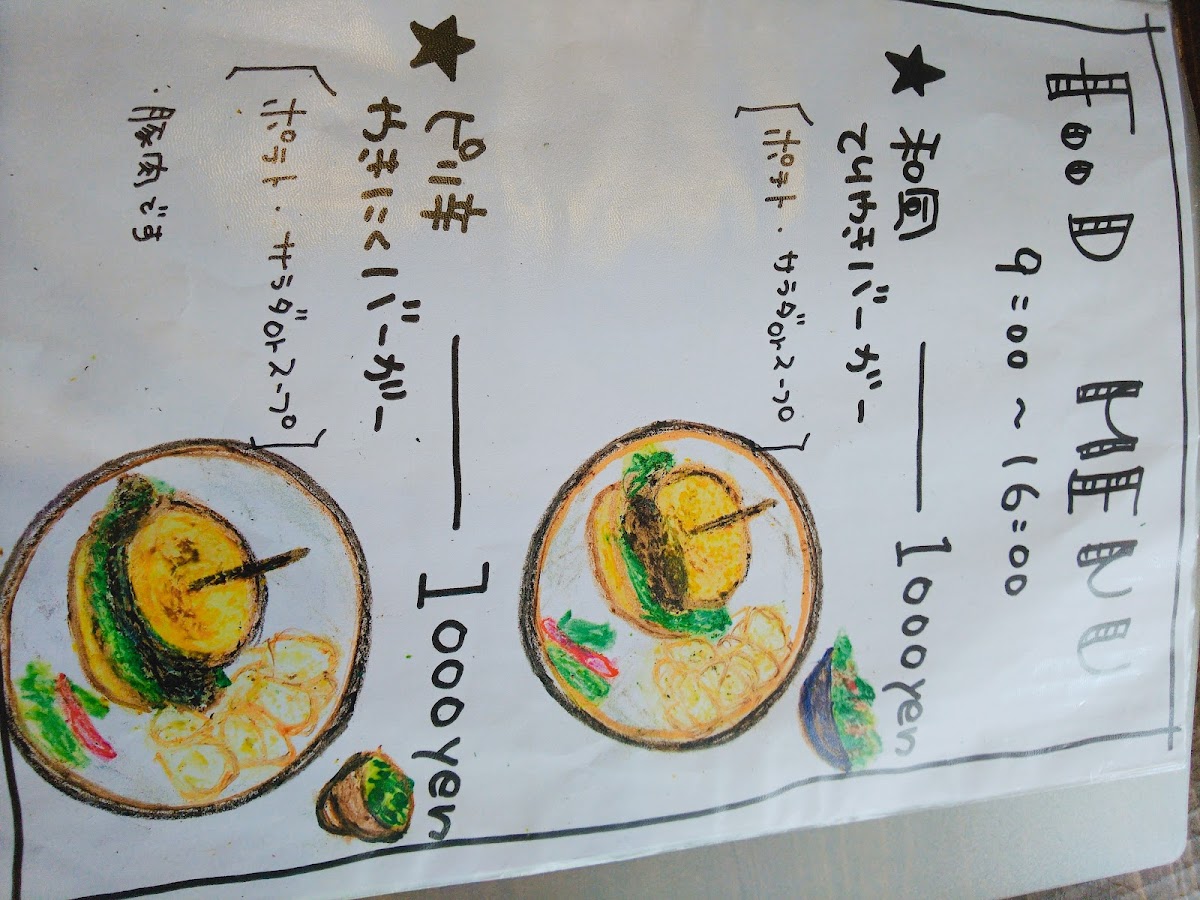 FOOD MENU
9:00 ~ 16:00
★ 和風
てりやきバーガー 1000yen
[ポテト・サラダorスープ]
★ ピリ辛
やきにくバーガー 1000yen
[ポテト・サラダorスープ]
・豚肉です